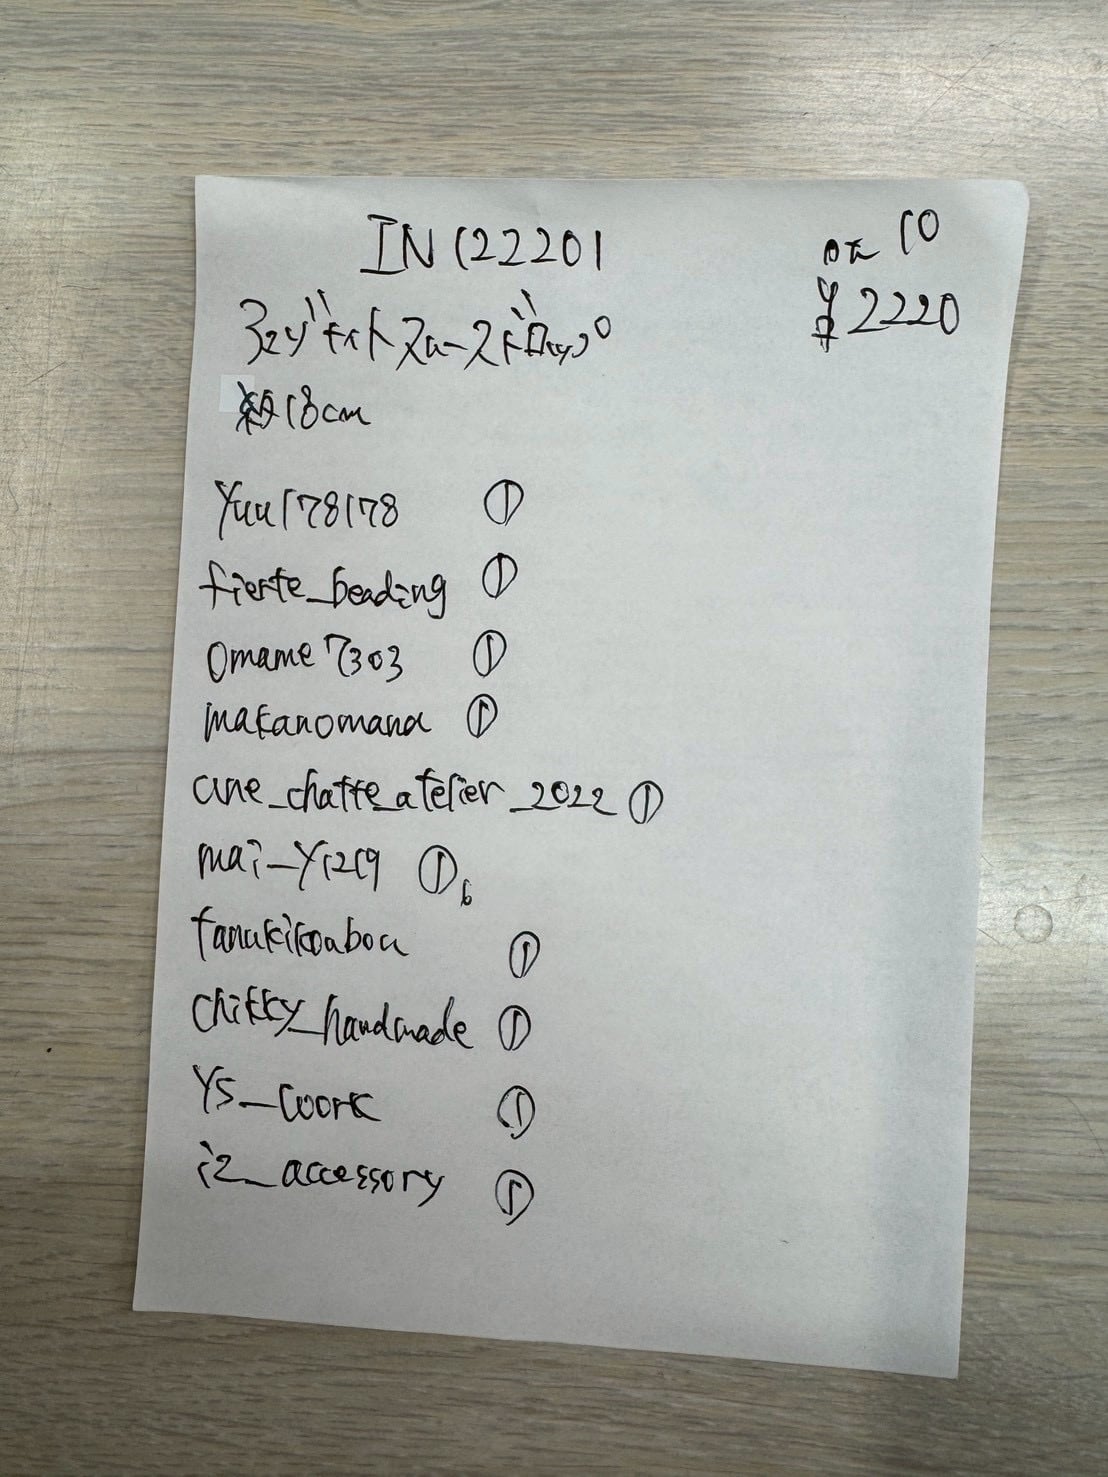 IN122201
カイヤナイトスムースドロップ
約18cm
限 10
¥2220
yuu178178 ①
fierte_beading ①
omame7303 ①
makanomana ①
une_chatte_atelier_2022 ①
mai_y1219 ① 6
tanukikoubou ①
chikky_handmade ①
YS_work ①
i2_accessory ①